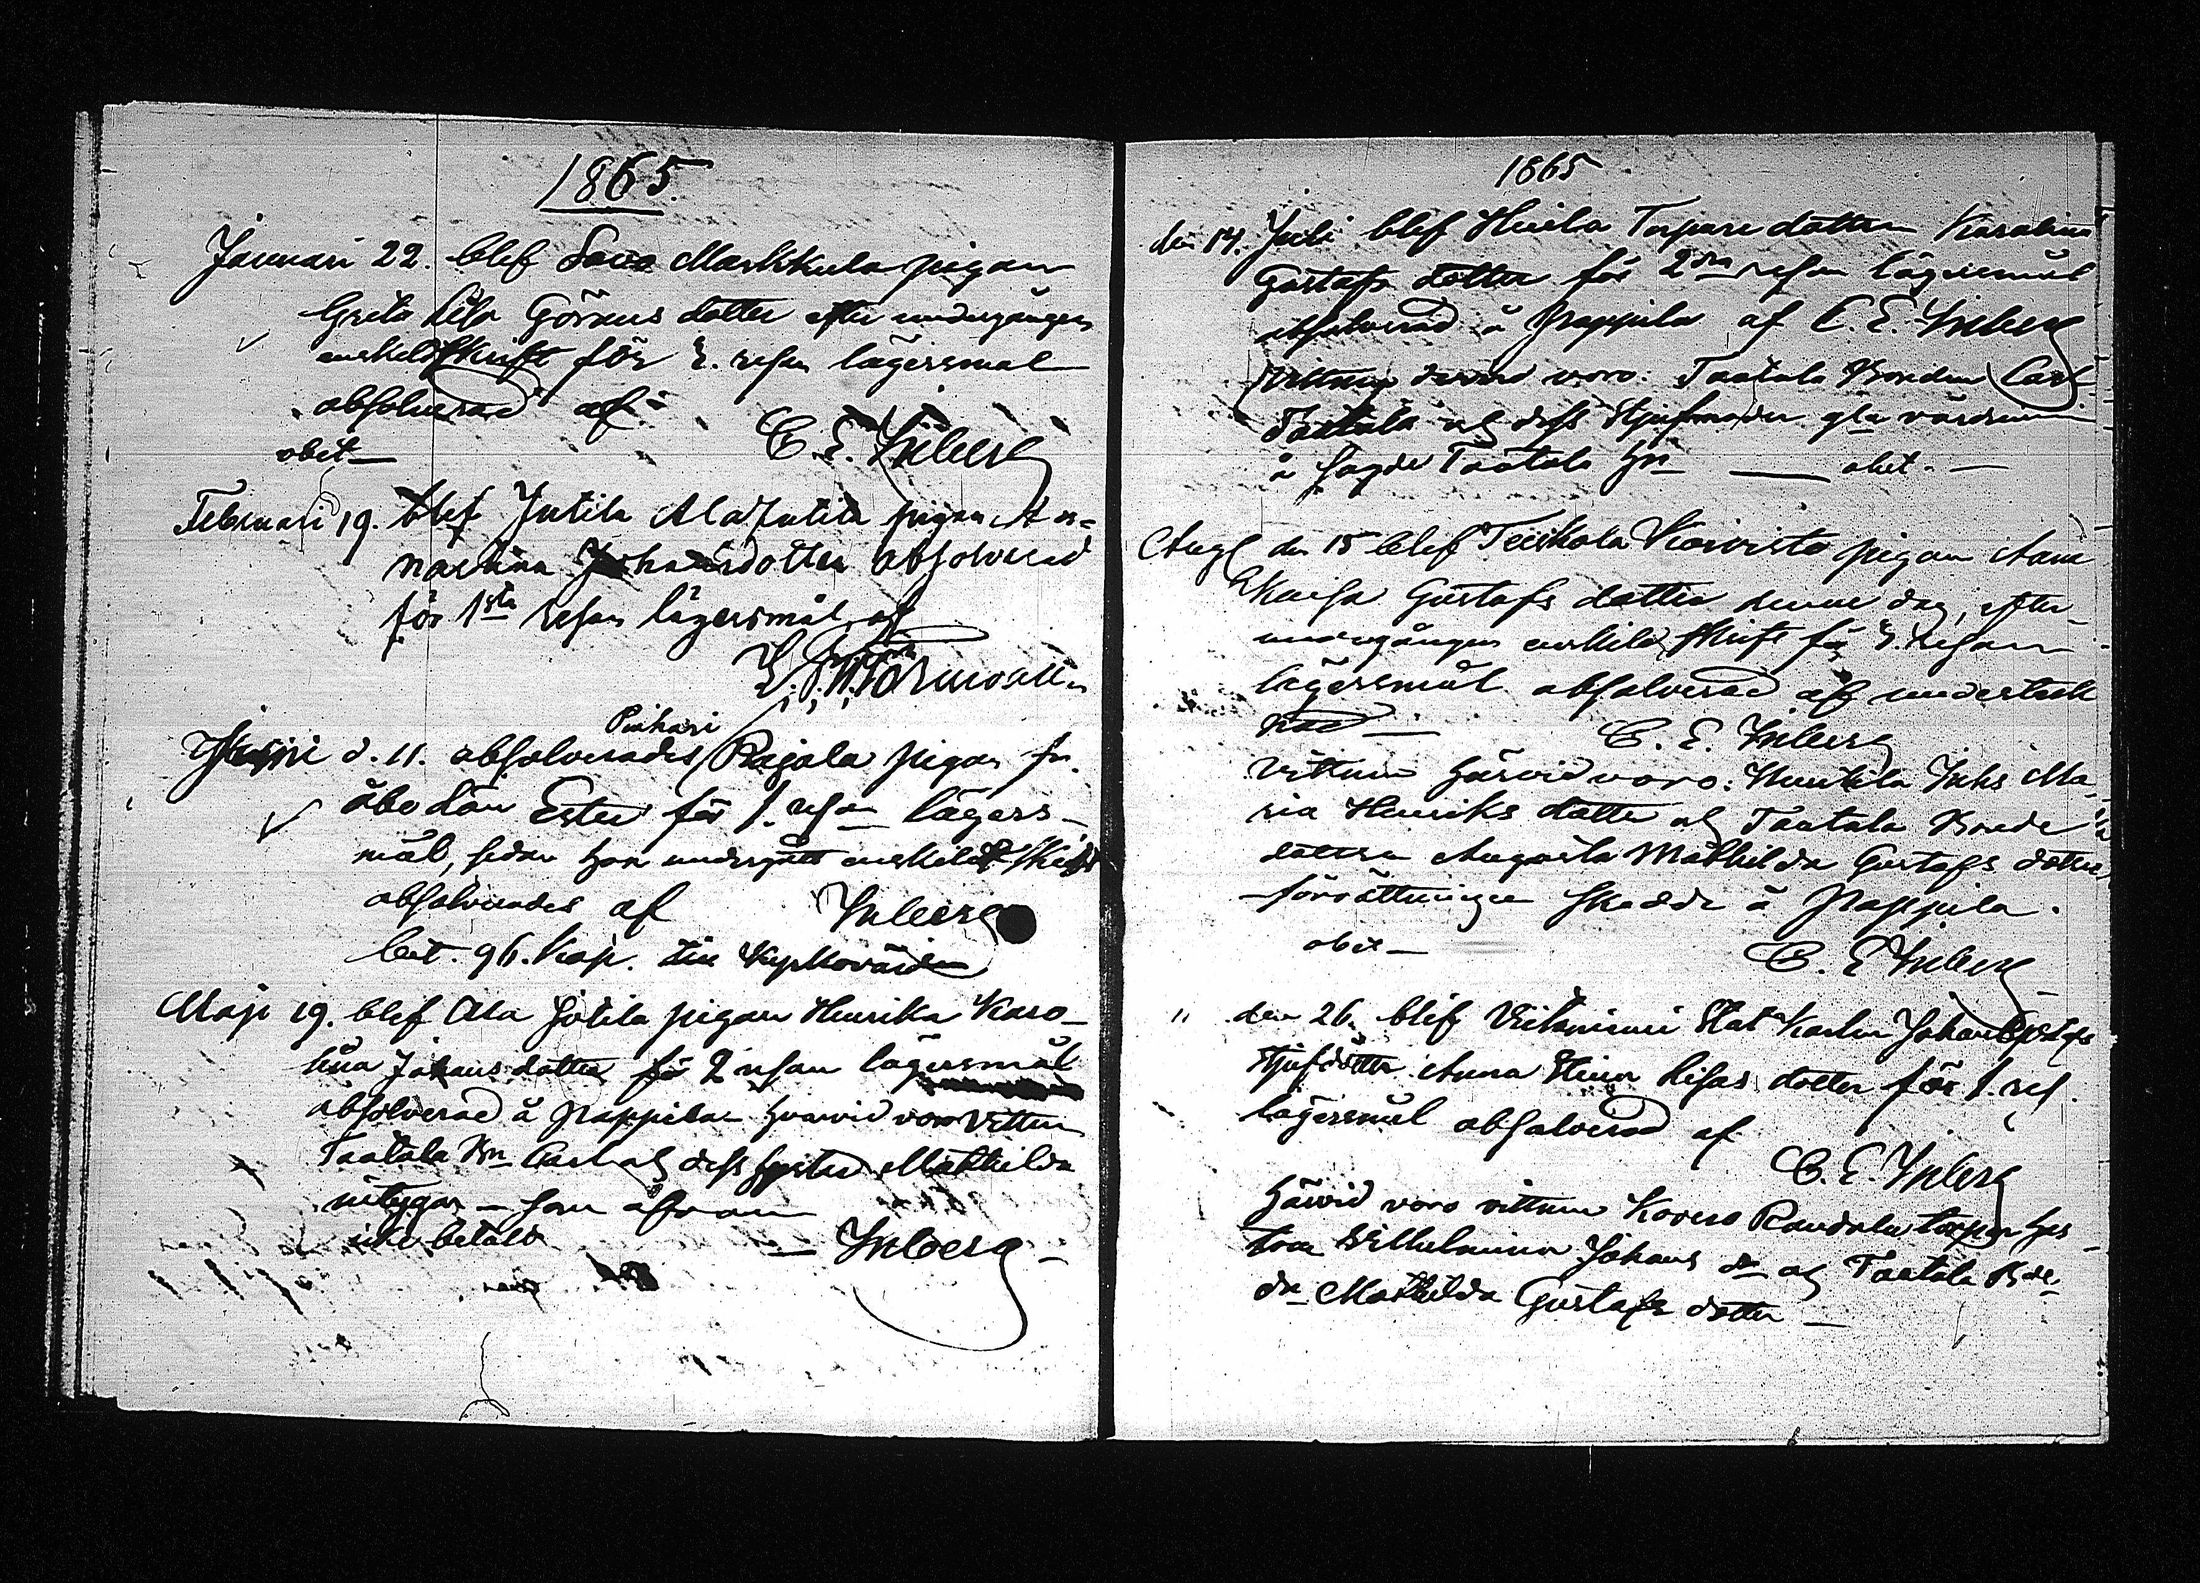 1865.
Januari 22. blef Savo Markkula pigan
Greta Lisa Görans dotter efter undergången
enskild skrift för 1. resan lägersmål
absolverad af
C. E. Inberg
obet
Februari 19. blef Jutila Ala Jutila pigan An-
na Stina Johansdotter absolverad
för 1sta resan lägersmål, af
Pinkari
d. 11. absolverades Rajala pigan fr.
Åbo län Ester för 1. resan lägers-
mål, sedan hon undergått enskild skrift
absolverades af Inberg
bet. 96. Kop. till Kyrkovärden
Maji 19. blef Ala Jutila pigan Henrika Karo-
lina Johans dotter för 2 resan lägersmål
absolverad å Pappila hvarvid voro vittnen
Taatala Bn Carl och dess syster Mathilda
intygar – som ofvan
icke betalt — Inberg –
1865
den 14. Juli blef Huila Torpare dottern Karolina
Gustafs dotter för 2dra resan lägersmål
absolverad å Pappila af C. E. Inberg
Vittnen dervid voro: Taatala Bonden Carl
Taatala och dess Stjufmoder gla värdinnan
å sagde Taatala Hn — obet. —
Aug den 15 blef Teiskola Koivisto pigan Anna
Kaisa Gustafs dotter denne dag, efter
undergången enskild skrift för 1. resan
lägersmål absolverad af underteck
nad — C. E. Inberg
Vittnen härvid voro: Inhs Ma-
ria Henriks dotter och Taatala Bonde
dottern Augusta Mathilda Gustafs dotter,
förrättningen skedde å Pappila.
obet — C. E. Inberg
" den 26. blef Viitaniemi Karlen Johan
stjufdotter Anna Stina Lisas dotter för 1. res.
lägersmål absolverad af
C. E. Inberg
Härvid voro vittnen Kovero Randala torpar hus-
trun Wilhelmina Johans dr och Taatala Bde-
dr Mathilda Gustafs dotter —